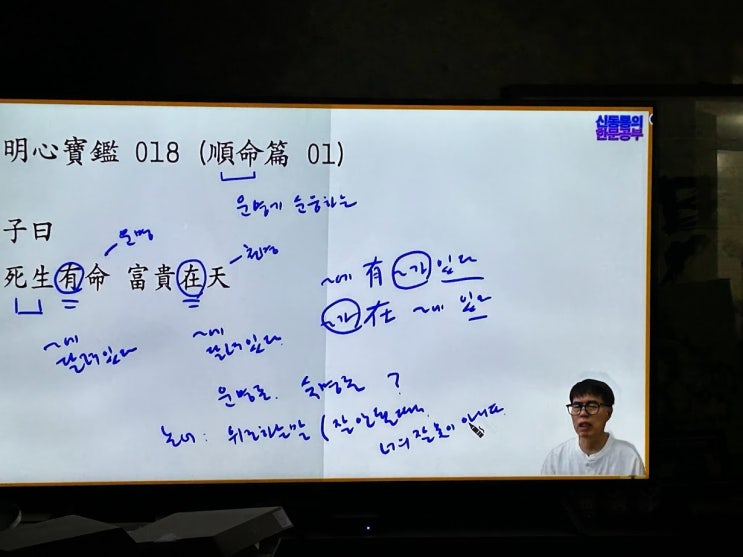 신동률의
한문공부
明心寶鑑 018 (順命篇 01)
운명에 순응하는
子曰
운명 천명
死生有命 富貴在天
~에 有 ~가 있다
~가 在 ~에 있다
~에 달려있다 ~에 달려있다.
운명론. 숙명론 ?
논어: 위로하는말 (잘 안될때나.
너의 잘못이 아니다.